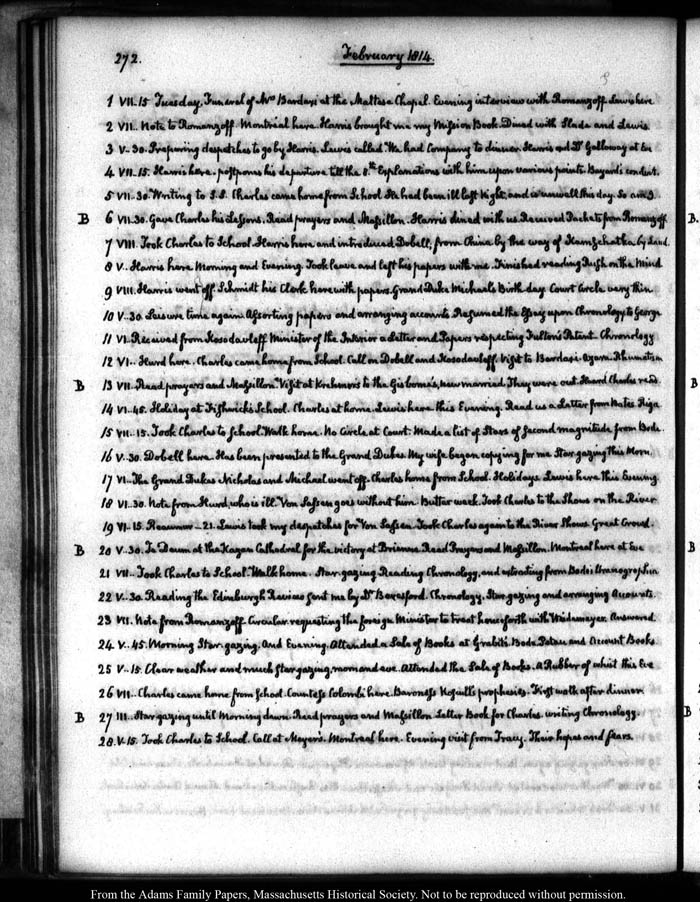 272.
February 1814.
1 VII.15 Tuesday. Funeral of Mrs Bardaxi at the Maltese Chapel. Evening interview with Romanzoff. Lewis here
2 VII.. Note to Romanzoff. Montréal here. Harris brought me my Mission Book. Dined with Slade and Lewis
3 V..30. Preparing despatches to go by Harris. Lewis called. We had Company to dinner. Harris and Dr Galloway at Eve
4 VII..15. Harris here. postpones his departure till the 8th Explanations with him upon various points. Bayard's conduct.
5 VII.30. Writing to S.S. Charles came home from School. He had been ill last Night, and is unwell this day. So am I.
B 6 VII.30. Gave Charles his Lessons. Read prayers and Massillon. Harris dined with us. Received Packets from Romanzoff
7 VIII. Took Charles to School. Harris here and introduced Dobell, from China by the way of Kamschatka by land.
8 V.. Harris here Morning and Evening. Took leave and left his papers with me. Finished reading Rush on the Mind
9 VIII. Harris went off. Schmidt his Clerk here with papers. Grand Duke Michael's Birth day. Court Circle very thin
10 V..30. Leisure time again. Assorting papers and arranging accounts. Resumed the Essay upon Chronology, to George
11 VI. Received from Kosodavleff Minister of the Interior a Letter and Papers respecting Fulton's Patent. Chronology
12 VI.. Hurd here. Charles came home from School. Call on Dobell and Kosodavleff. Visit to Bardaxi. Rheumatism
B 13 VII. Read prayers and Massillon. Visit at Krehmer's to the Gisborne's, new married. They were out. Heard Charles read.
14 VI..45. Holiday at Fishwick's School. Charles at home. Lewis here this Evening. Read us a Letter from Bates Riga
15 VII..15. Took Charles to School. Walk home. No Circle at Court. Made a list of Stars of second magnitude from Bode.
16 V.30. Dobell here. Has been presented to the Grand Dukes. My wife began copying for me Star gazing this Morn.
17 VI.. The Grand Dukes Nicholas and Michael went off. Charles home from School. Holidays. Lewis here this Evening
18 VI.30. Note from Hurd, who is ill. Von Sassen goes without him. Butter week. Took Charles to the Shows on the River
19 VI..15. Reaumur -21. Lewis took my despatches for Von Sassen. Took Charles again to the River Shows. Great Crowd.
B 20 V..30. Te Deum at the Kazan Cathedral for the victory at Brienne. Read Prayers and Massillon. Montreal here at Eve
21 VII.. Took Charles to School. Walk home. Star-gazing Reading Chronology, and extracting from Bode's Uranographia
22 V..30. Reading the Edinburgh Reviews sent me by Dr Beresford. Chronology, Star-gazing and arranging Accounts.
23 VII. Note from Romanzoff. Circular requesting the foreign Ministers to treat henceforth with Weidemeyer. Answered.
24 V..45. Morning Star-gazing. And Evening. Attended a Sale of Books at Grabit's. Bode and Account Books
25 V..15. Clear weather and much star gazing, morn and eve. Attended the Sale of Books. A Rubber of whist this Eve
26 VII.. Charles came home from School. Countess Colombi here. Baroness prophecies. First walk after dinner
B 27 III.. Star gazing until Morning dawn. Read prayers and Massillon. Letter Book for Charles. writing Chronology.
28. V.15. Took Charles to School. Call at Meyer's. Montreal here. Evening visit from Tracy. Their hopes and fears.
B.
B
B
B
From the Adams Family Papers, Massachusetts Historical Society. Not to be reproduced without permission.